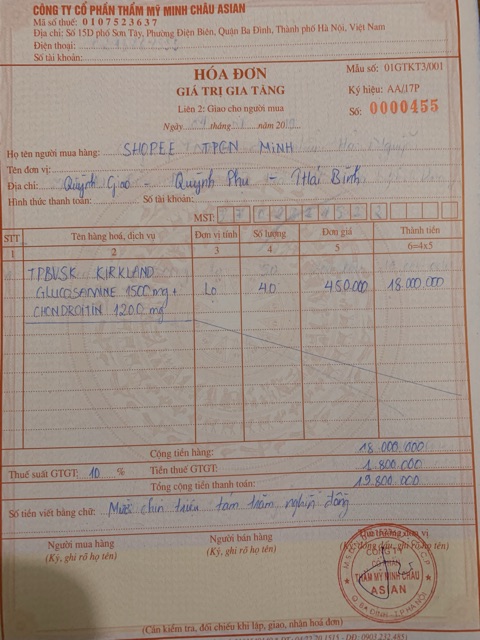 CÔNG TY CỔ PHẦN THẨM MỸ MINH CHÂU ASIAN
Mã số thuế: 0107523637
Địa chỉ: Số 15D phố Sơn Tây, Phường Điện Biên, Quận Ba Đình, Thành phố Hà Nội, Việt Nam
Điện thoại:
Số tài khoản:
HÓA ĐƠN
GIÁ TRỊ GIA TĂNG
Liên 2: Giao cho người mua
Ngày tháng năm 20
Mẫu số: 01GTKT3/001
Ký hiệu: AA/17P
Số: 0000455
Họ tên người mua hàng: SHOPEE TPCN MINH
Tên đơn vị:
Địa chỉ: Quỳnh Giao - Quỳnh Phụ - Thái Bình
Hình thức thanh toán: Số tài khoản:
MST:
STT Tên hàng hoá, dịch vụ Đơn vị tính Số lượng Đơn giá Thành tiền
1 2 3 4 5 6=4x5
TPBVSK KIRKLAND
GLUCOSAMINE 1500 mg + Lọ 40 450.000 18.000.000
CHONDROITIN 1200 mg
Cộng tiền hàng: 18 000.000
Thuế suất GTGT: 10 % Tiền thuế GTGT: 1.800.000
Tổng cộng tiền thanh toán: 19.800.000
Số tiền viết bằng chữ: Mười chín triệu tám trăm nghìn đồng
Người mua hàng Người bán hàng
(Ký, ghi rõ họ tên) (Ký, ghi rõ họ tên)
CÔNG TY
CỔ PHẦN
THẨM MỸ MINH CHÂU
ASIAN
Q. BA ĐÌNH - T.P HÀ NỘI
(Cần kiểm tra, đối chiếu khi lập, giao, nhận hoá đơn)